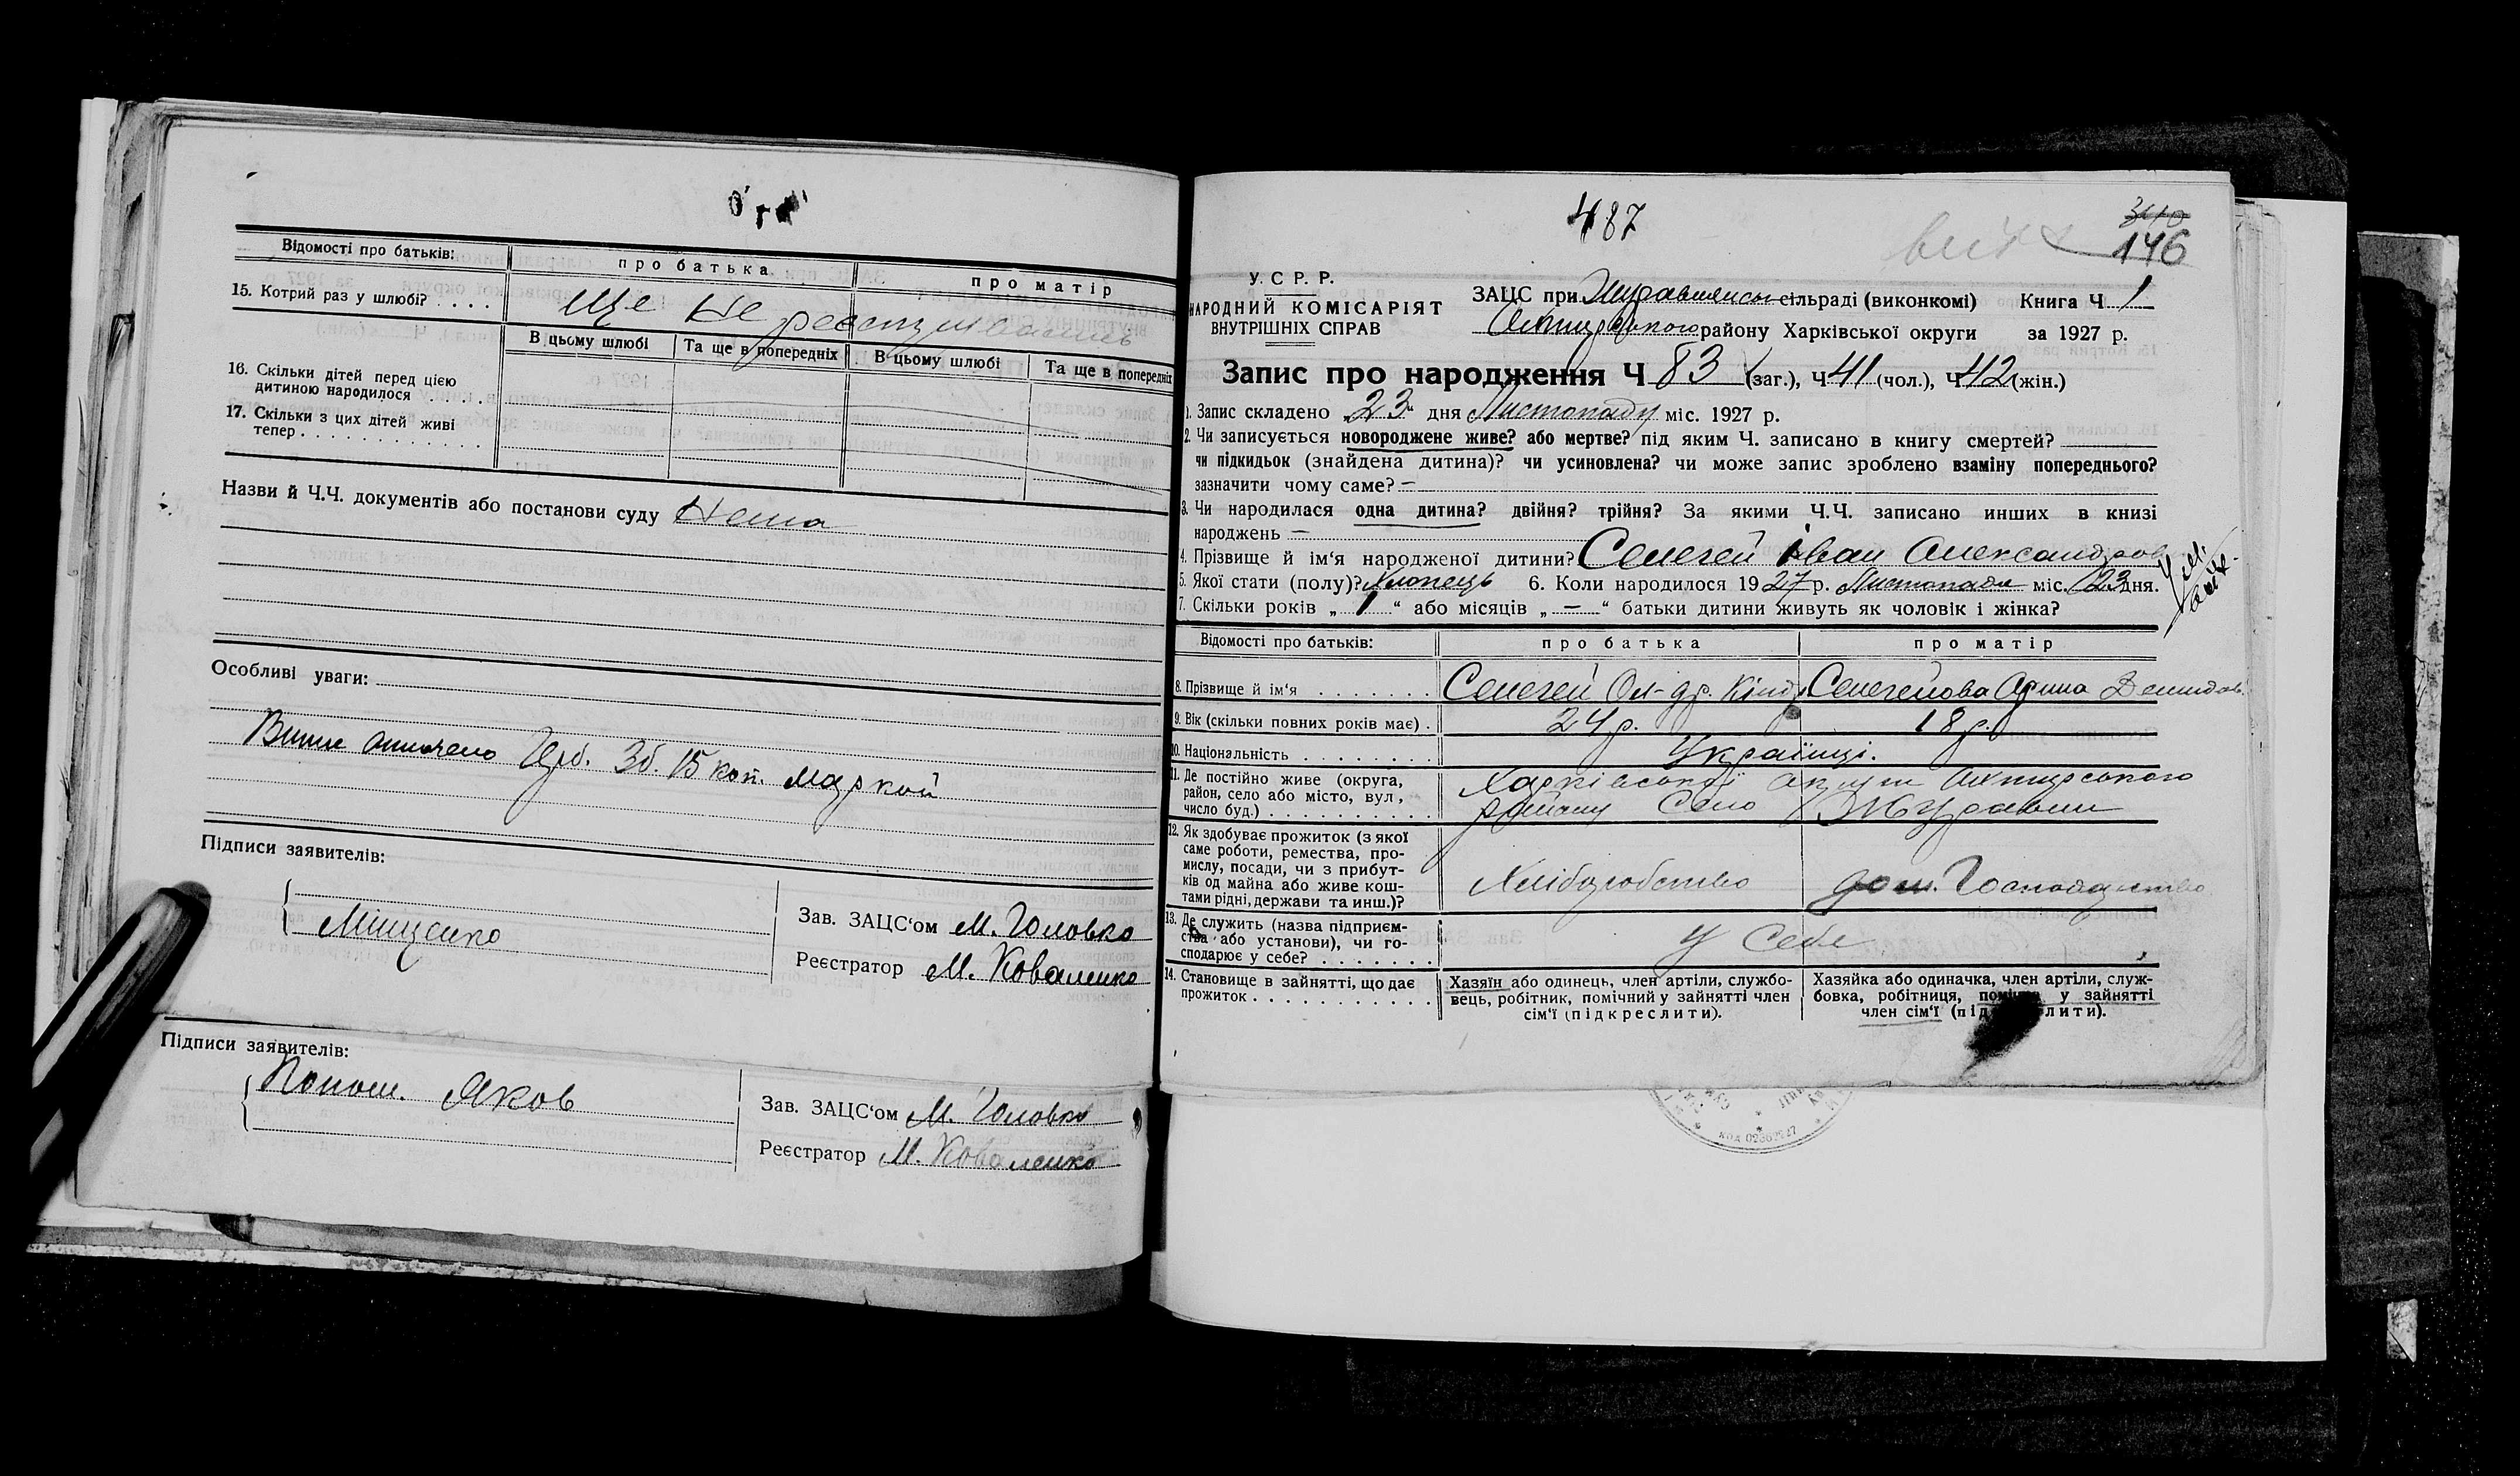 Відомості про батьків: про батька про матір
15. Котрий раз у шлюбі? . . . . Ще не
В цьому шлюбі Та ще в попередніх В цьому шлюбі Та ще в попередніх
16. Скільки дітей перед цією
дитиною народилося . . . .
17. Скільки з цих дітей живі
тепер . . . . . . . . . . . .
Назви й Ч.Ч. документів або постанови суду Нема
Особливі уваги:
оплочено Герб. Зб. 15 коп. маркой
Підписи заявителів:
Міщенко
Зав. ЗАЦС‘ом М. Головко
Реєстратор М. Коваленко
Підписи заявителів:
Яков
Зав. ЗАЦС‘ом М. Головко
Реєстратор М. Коваленко
487
340
146
У. С. Р. Р.
НАРОДНИЙ КОМІСАРІЯТ
ВНУТРІШНІХ СПРАВ
ЗАЦС при сільраді (виконкомі) Книга Ч 1
району Харківської округи за 1927 р.
Запис про народження Ч 83 (заг.), Ч 41 (чол.), Ч 42 (жін.)
1. Запис складено „23“ дня Листопаду міс. 1927 р.
2. Чи записується новороджене живе? або мертве? під яким Ч. записано в книгу смертей?
чи підкидьок (знайдена дитина)? чи усиновлена? чи може запис зроблено взаміну попереднього?
зазначити чому саме? —
3. Чи народилася одна дитина? двійня? трійня? За якими Ч.Ч. записано инших в книзі
народжень —
4. Прізвище й ім‘я народженої дитини? Селегей Іван Александров
5. Якої стати (полу)? Хлопець 6. Коли народилося 1927 р. Листопада міс. 23 дня.
7. Скільки років „ 1 “ або місяців „ — “ батьки дитини живуть як чоловік і жінка?
Відомості про батьків: про батька про матір
8. Прізвище й ім‘я . . . . . . . Селегей Ол-др. Кінд. Селегейова Орина Демидов.
9. Вік (скільки повних років має) . 24 р. 18 р.
10. Національність . . . . . . . . Українці.
11. Де постійно живе (округа, Харківської округи Охтирського
район, село або місто, вул, району Село Журавни
число буд.) . . . . . . . . . . .
12. Як здобуває прожиток (з якої
саме роботи, ремества, про-
мислу, посади, чи з прибут- Хліборобство дом. Господарство
ків од майна або живе кош-
тами рідні, держави та инш.)?
13. Де служить (назва підприєм-
ства або установи), чи го- У Себе
сподарює у себе? . . . . . . .
14. Становище в зайнятті, що дає
прожиток . . . . . . . . . . . .
Хазяїн або одинець, член артіли, службо-
вець, робітник, помічний у зайнятті член
сім‘ї (підкреслити).
Хазяйка або одиначка, член артіли, служ-
бовка, робітниця, у зайнятті
член сім‘ї